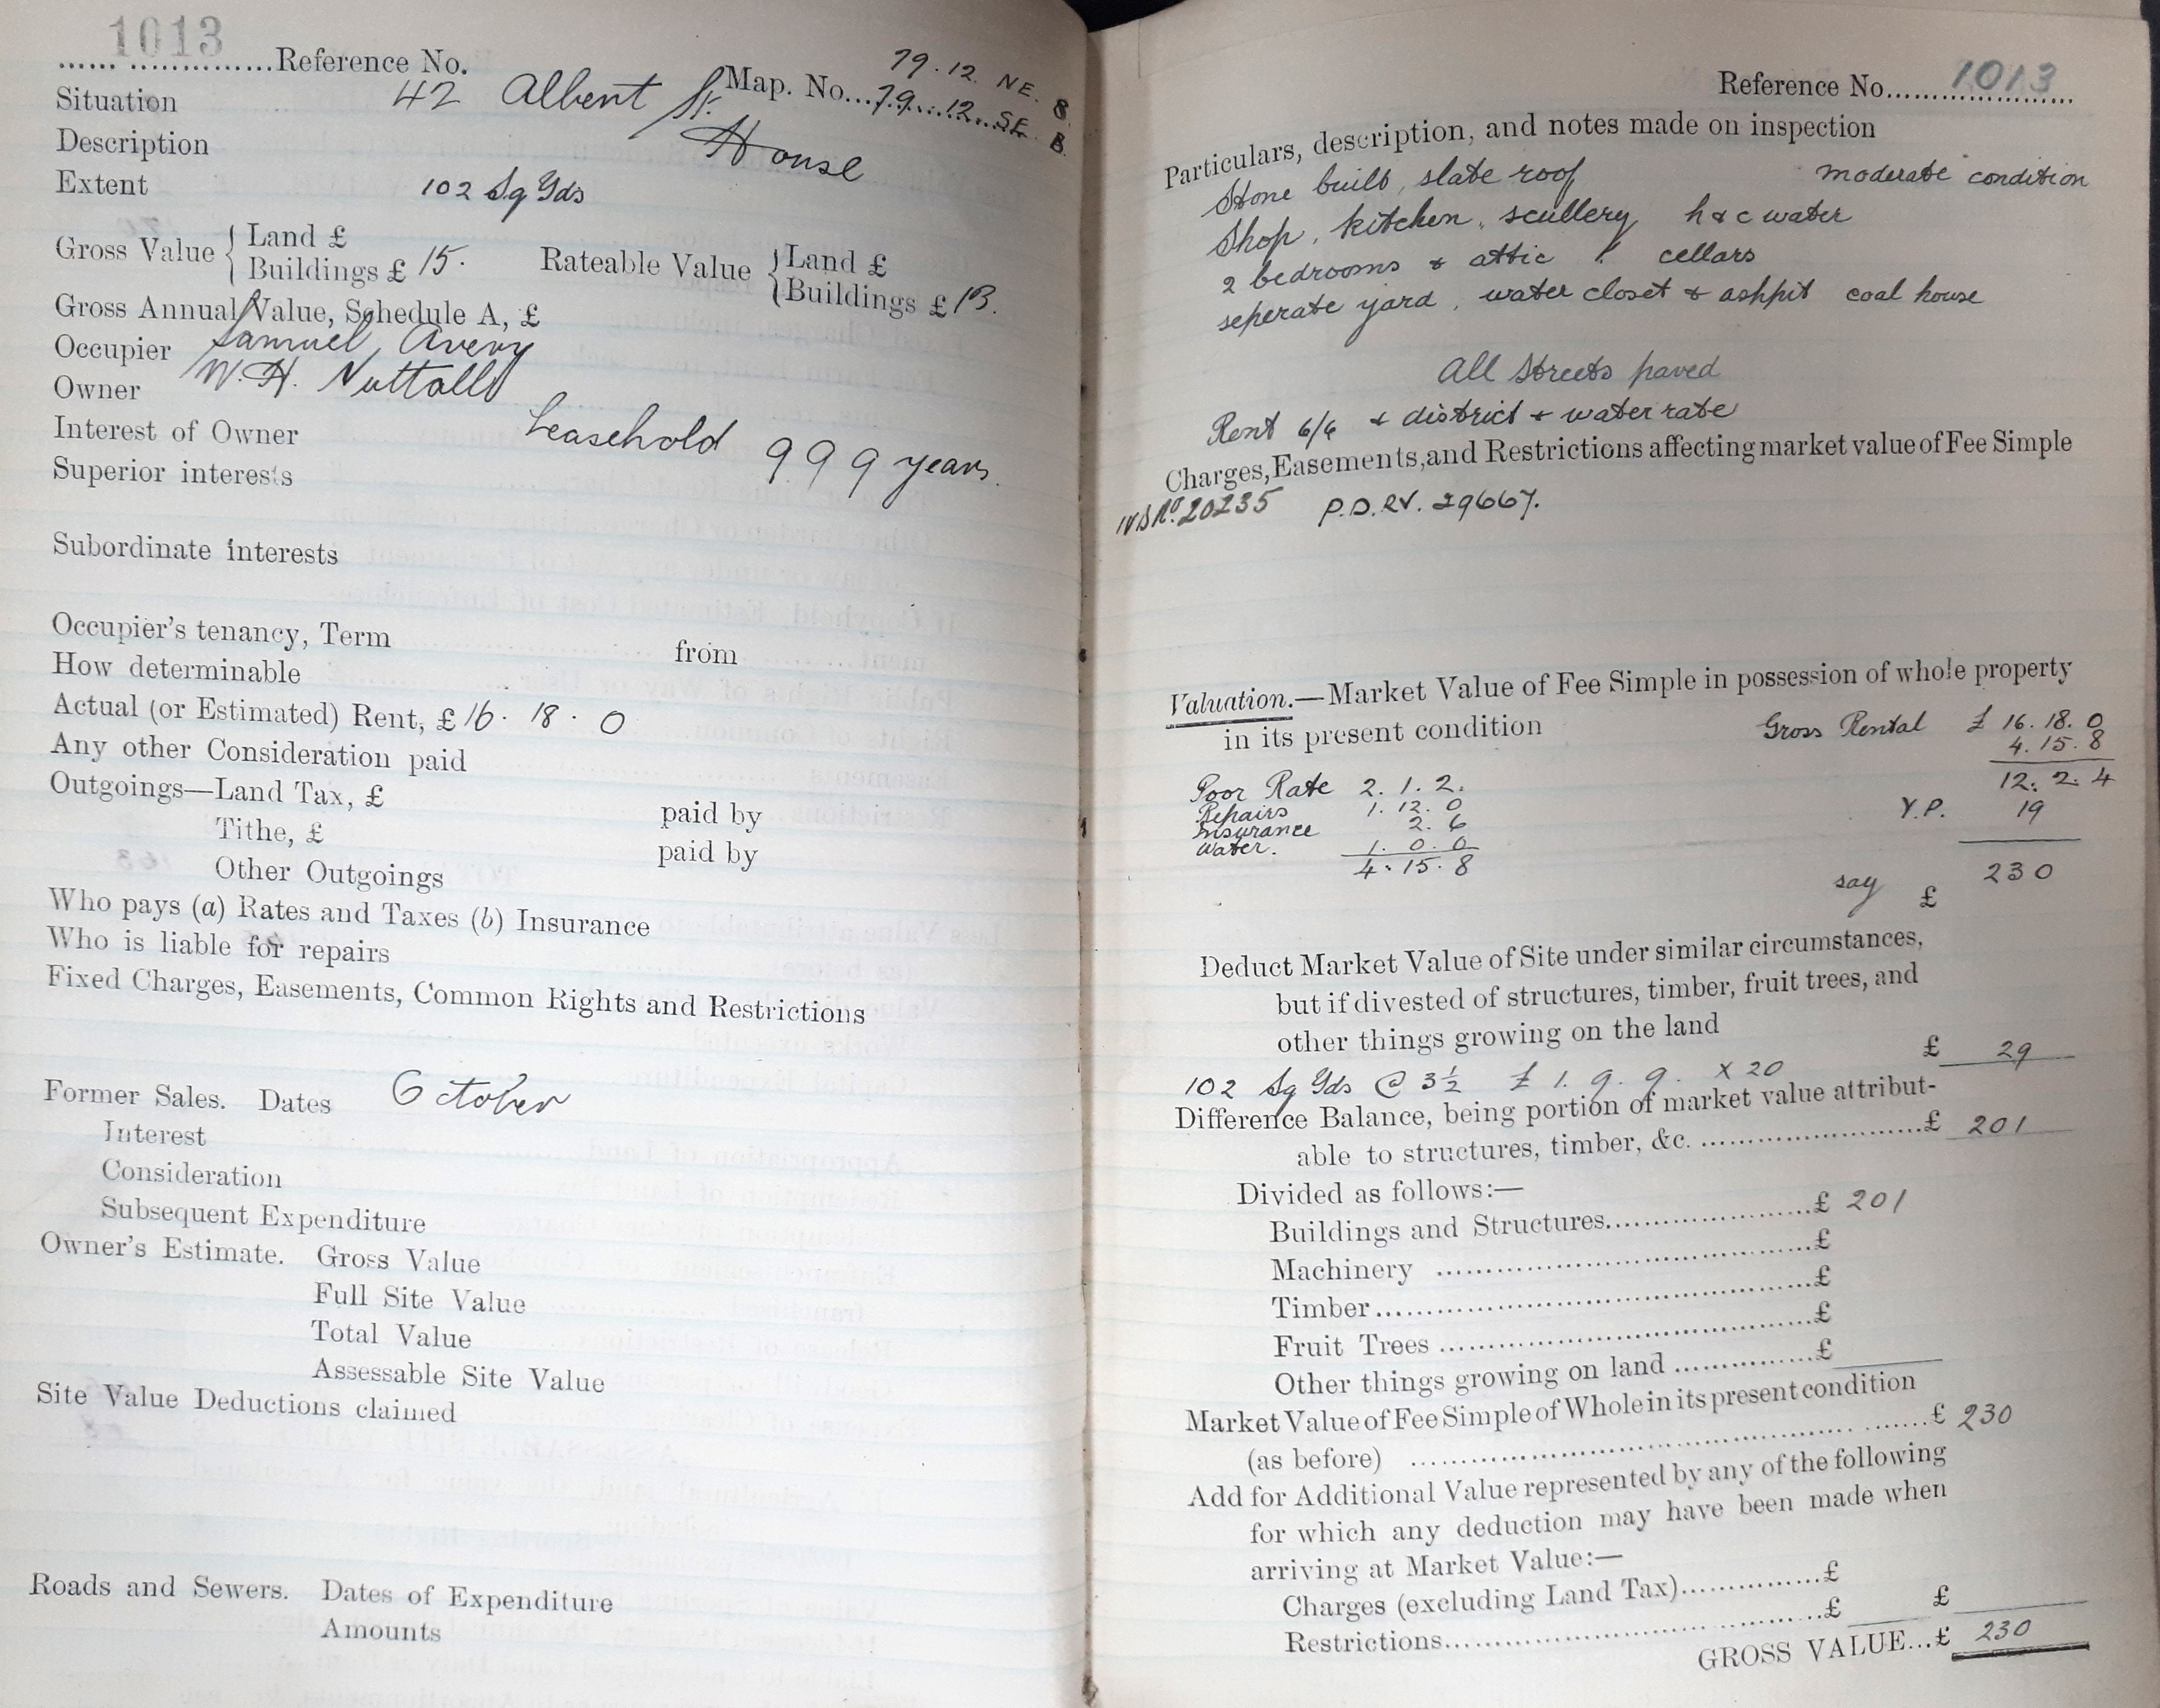 1013
...... ...............Reference No.
Map. No...79....12....SE. B.
79.12. NE. 8.
Situation 42 Albert St.
Description House
Extent 102 Sq Yds
Gross Value { Land £
Buildings £ 15.
Rateable Value { Land £
Buildings £ 13.
Gross Annual Value, Schedule A, £
Occupier Samuel Avery
Owner W. H. Nuttall
Interest of Owner Leasehold 999 years.
Superior interests
Subordinate interests
Occupier's tenancy, Term from
How determinable
Actual (or Estimated) Rent, £ 16. 18. 0
Any other Consideration paid
Outgoings—Land Tax, £ paid by
Tithe, £ paid by
Other Outgoings
Who pays (a) Rates and Taxes (b) Insurance
Who is liable for repairs
Fixed Charges, Easements, Common Rights and Restrictions
Former Sales. Dates October
Interest
Consideration
Subsequent Expenditure
Owner's Estimate. Gross Value
Full Site Value
Total Value
Assessable Site Value
Site Value Deductions claimed
Roads and Sewers. Dates of Expenditure
Amounts
Reference No. 1013
Particulars, description, and notes made on inspection
Stone built, slate roof moderate condition
Shop, kitchen, scullery h & c water
2 bedrooms & attic cellars
seperate yard, water closet & ashpit coal house
All Streets paved
Rent 6/6 + district + water rate
Charges, Easements, and Restrictions affecting market value of Fee Simple
IVS No. 20235 P.D. RV. 29667.
Valuation.—Market Value of Fee Simple in possession of whole property
in its present condition Gross Rental £ 16. 18. 0
4. 15. 8
Poor Rate 2. 1. 2. 12. 2. 4
Repairs 1. 12. 0 Y.P. 19
Insurance 2. 6
Water. 1. 0. 0
4. 15. 8
say £ 230
Deduct Market Value of Site under similar circumstances,
but if divested of structures, timber, fruit trees, and
other things growing on the land £ 29
102 Sq Yds @ 3½ £ 1. 9. 9. x 20
Difference Balance, being portion of market value attribut-
able to structures, timber, &c. ........................£ 201
Divided as follows:—
Buildings and Structures......................£ 201
Machinery ......................................£
Timber............................................£
Fruit Trees ......................................£
Other things growing on land ...............£
Market Value of Fee Simple of Whole in its present condition
(as before) .............................................£ 230
Add for Additional Value represented by any of the following
for which any deduction may have been made when
arriving at Market Value:—
Charges (excluding Land Tax)...............£
Restrictions......................................£ £
GROSS VALUE...£ 230